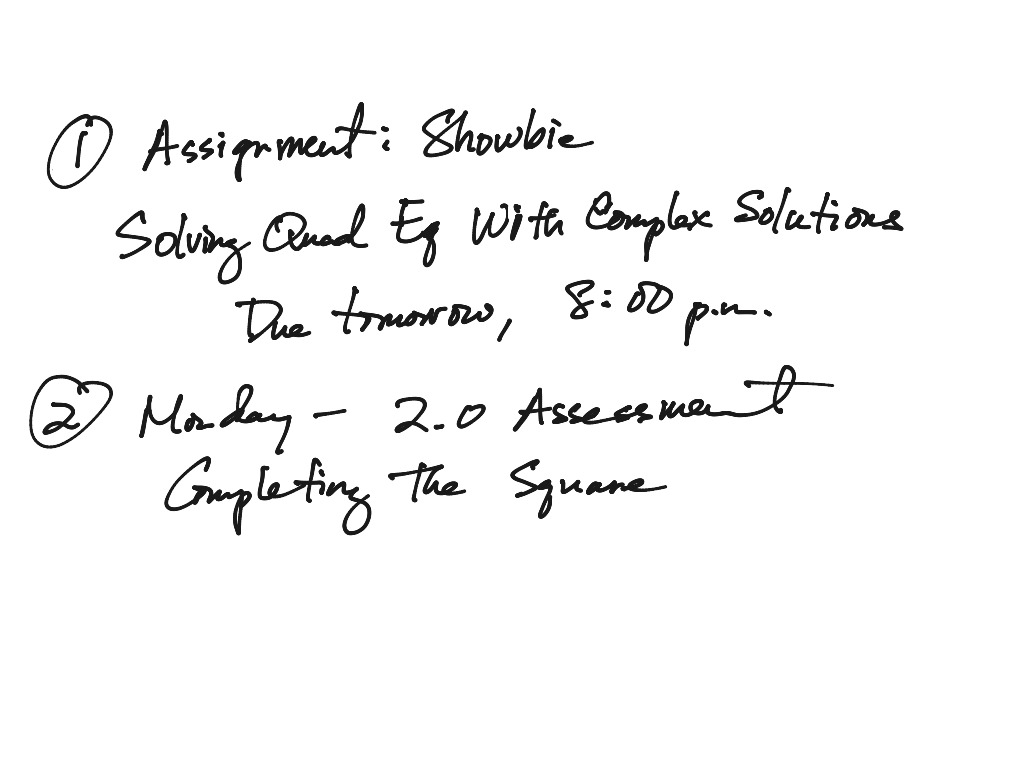 ① Assignment: Showbie
Solving Quad Eq With Complex Solutions
Due tomorrow, 8:00 p.m.
② Monday - 2.0 Assessment
Completing The Square